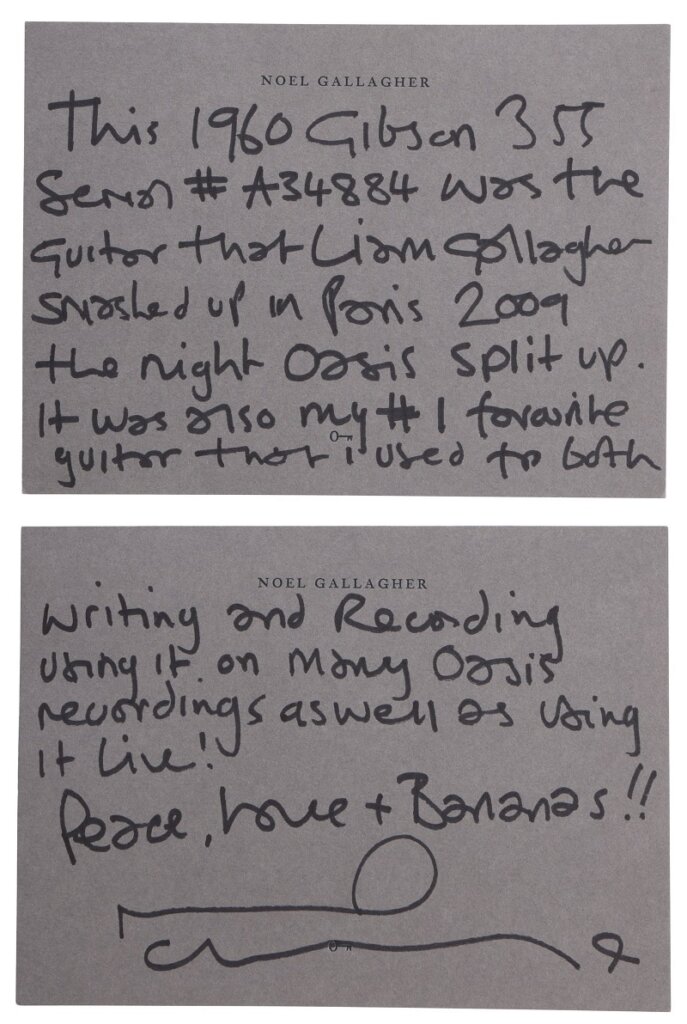 NOEL GALLAGHER
This 1960 Gibson 355
Serial # A34884 was the
guitar that Liam Gallagher
smashed up in Paris 2009
the night Oasis split up.
It was also my # 1 favourite
guitar that i used to both
NOEL GALLAGHER
writing and Recording
using it on Many Oasis
recordings aswell as using
it Live!
Peace, Love + Bananas!!